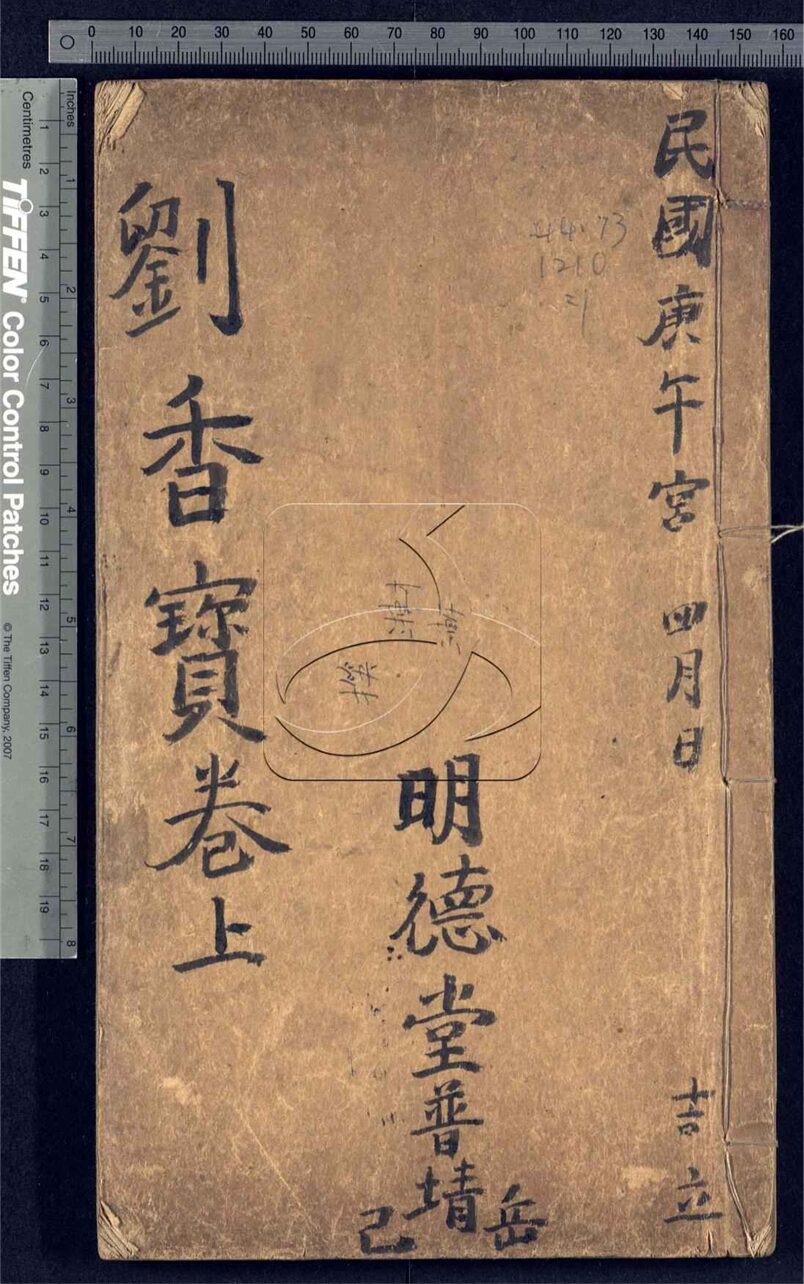 民國庚午宮 四月日 吉立
明德堂普堉岳己
劉香寶卷上
44.73
1210
=1
0 10 20 30 40 50 60 70 80 90 100 110 120 130 140 150 160
Inches 1 2 3 4 5 6 7 8
Centimetres 1 2 3 4 5 6 7 8 9 10 11 12 13 14 15 16 17 18 19
TIFFEN® Color Control Patches © The Tiffen Company, 2007